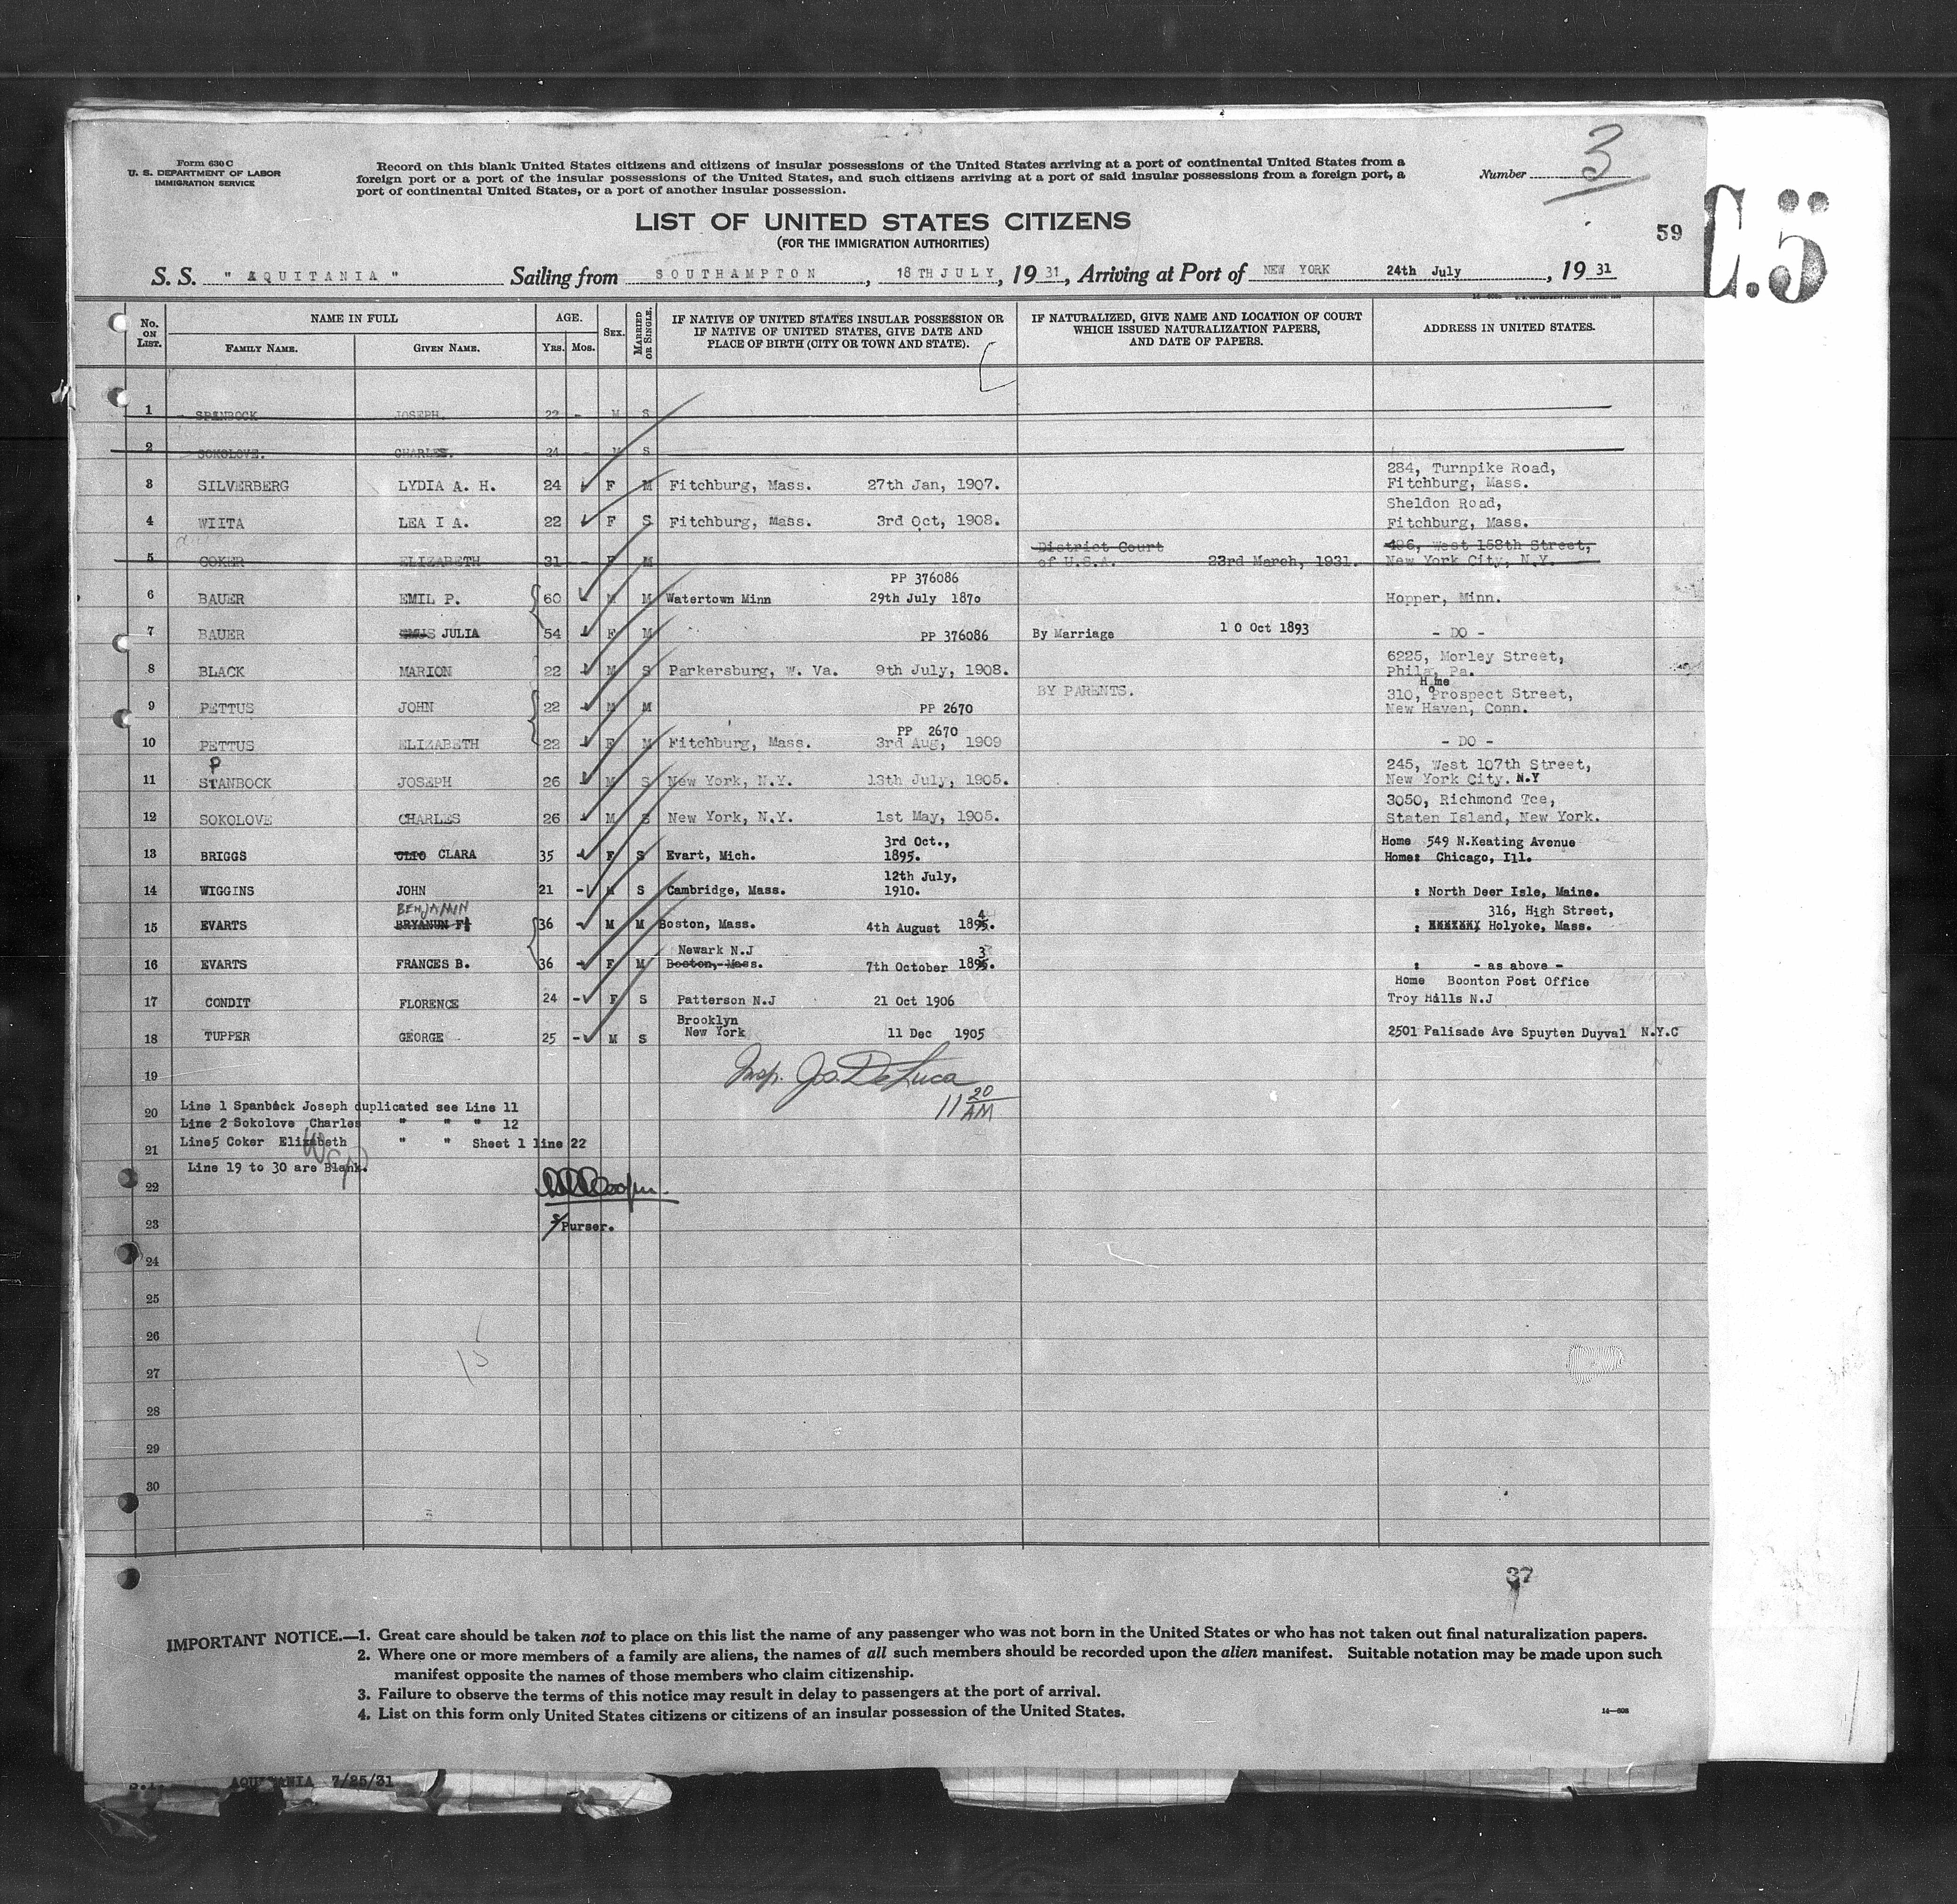 Form 630 C
U. S. DEPARTMENT OF LABOR
IMMIGRATION SERVICE
Record on this blank United States citizens and citizens of insular possessions of the United States arriving at a port of continental United States from a
foreign port or a port of the insular possessions of the United States, and such citizens arriving at a port of said insular possessions from a foreign port, a
port of continental United States, or a port of another insular possession.
Number 3
LIST OF UNITED STATES CITIZENS
(FOR THE IMMIGRATION AUTHORITIES)
59
C.5
S. S. " AQUITANIA " Sailing from SOUTHAMPTON, 18TH JULY, 19 31, Arriving at Port of NEW YORK 24th July, 19 31
No. ON LIST.
NAME IN FULL
FAMILY NAME. GIVEN NAME.
AGE.
YRS. MOS.
SEX.
MARRIED OR SINGLE.
IF NATIVE OF UNITED STATES INSULAR POSSESSION OR
IF NATIVE OF UNITED STATES, GIVE DATE AND
PLACE OF BIRTH (CITY OR TOWN AND STATE).
IF NATURALIZED, GIVE NAME AND LOCATION OF COURT
WHICH ISSUED NATURALIZATION PAPERS,
AND DATE OF PAPERS.
ADDRESS IN UNITED STATES.
1 SPANBOCK JOSEPH. 22 - M S
2 SOKOLOVE. CHARLES. 24 - M S
284, Turnpike Road,
3 SILVERBERG LYDIA A. H. 24 F M Fitchburg, Mass. 27th Jan, 1907. Fitchburg, Mass.
Sheldon Road,
4 WIITA LEA I A. 22 F S Fitchburg, Mass. 3rd Oct, 1908. Fitchburg, Mass.
District Court 496, West 158th Street,
5 COKER ELIZABETH 31 - F M of U.S.A. 23rd March, 1931. New York City, N.Y.
PP 376086
6 BAUER EMIL P. 60 M M Watertown Minn 29th July 1870 Hopper, Minn.
7 BAUER JULIA 54 F M PP 376086 By Marriage 10 Oct 1893 - DO -
6225, Morley Street,
8 BLACK MARION 22 M S Parkersburg, W. Va. 9th July, 1908. Phila, Pa.
BY PARENTS. Home 310, Prospect Street,
9 PETTUS JOHN 22 M M PP 2670 New Haven, Conn.
PP 2670
10 PETTUS ELIZABETH 22 F M Fitchburg, Mass. 3rd Aug, 1909 - DO -
P
245, West 107th Street,
11 STANBOCK JOSEPH 26 M S New York, N.Y. 13th July, 1905. New York City. N.Y
3050, Richmond Tce,
12 SOKOLOVE CHARLES 26 M S New York, N.Y. 1st May, 1905. Staten Island, New York.
3rd Oct., Home 549 N.Keating Avenue
13 BRIGGS CLARA 35 F S Evart, Mich. 1895. Home: Chicago, Ill.
12th July,
14 WIGGINS JOHN 21 - M S Cambridge, Mass. 1910. : North Deer Isle, Maine.
BENJAMIN 4 316, High Street,
15 EVARTS BRYANUN F. 36 M M Boston, Mass. 4th August 1895. : XXXXXXX Holyoke, Mass.
Newark N.J 3
16 EVARTS FRANCES B. 36 F M Boston, Mass. 7th October 1895. : - as above -
Home Boonton Post Office
17 CONDIT FLORENCE 24 - F S Patterson N.J 21 Oct 1906 Troy Hills N.J
Brooklyn
18 TUPPER GEORGE 25 - M S New York 11 Dec 1905 2501 Palisade Ave Spuyten Duyval N.Y.C
19
Insp. Jos. DeLuca
11 20 AM
20
Line 1 Spanbock Joseph duplicated see Line 11
Line 2 Sokolove Charles " " " 12
21
Line5 Coker Elizabeth " " Sheet 1 line 22
Line 19 to 30 are Blank.
22
23
Purser.
24
25
26
27
28
29
30
37
IMPORTANT NOTICE.—1. Great care should be taken not to place on this list the name of any passenger who was not born in the United States or who has not taken out final naturalization papers.
2. Where one or more members of a family are aliens, the names of all such members should be recorded upon the alien manifest. Suitable notation may be made upon such
manifest opposite the names of those members who claim citizenship.
3. Failure to observe the terms of this notice may result in delay to passengers at the port of arrival.
4. List on this form only United States citizens or citizens of an insular possession of the United States.
14—608
AQUITANIA 7/25/31